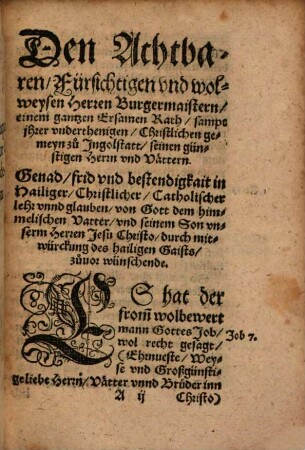 Den Achtba-
ren/ Fürsichtigen vnd wol-
weysen Herren Burgermaistern/
einem gantzen Ersamen Rath/ sampt
jhrer vnderthenigen/ Christlichen ge-
meyn zů Ingolstatt/ seinen gün-
stigen Herrn vnd Vättern.
Genad/ frid vnd bestendigkait in
Hailiger/ Christlicher/ Catholischer
lehr vnnd glauben/ von Gott dem him-
melischen Vatter/ vnd seinem Son vn-
serm Herren Jesu Christo/ durch mit-
würckung des hailigen Gaists/
zůuor wünschende.
ES hat der
from̃ wolbewert
mann Gottes Job/ Job 7.
wol recht gesagt/
(Ehrnueste/ Wey-
se vnd Großgünsti-
ge liebe Herrn̄/ Vätter vnnd Brüder inn
A ij Christo)